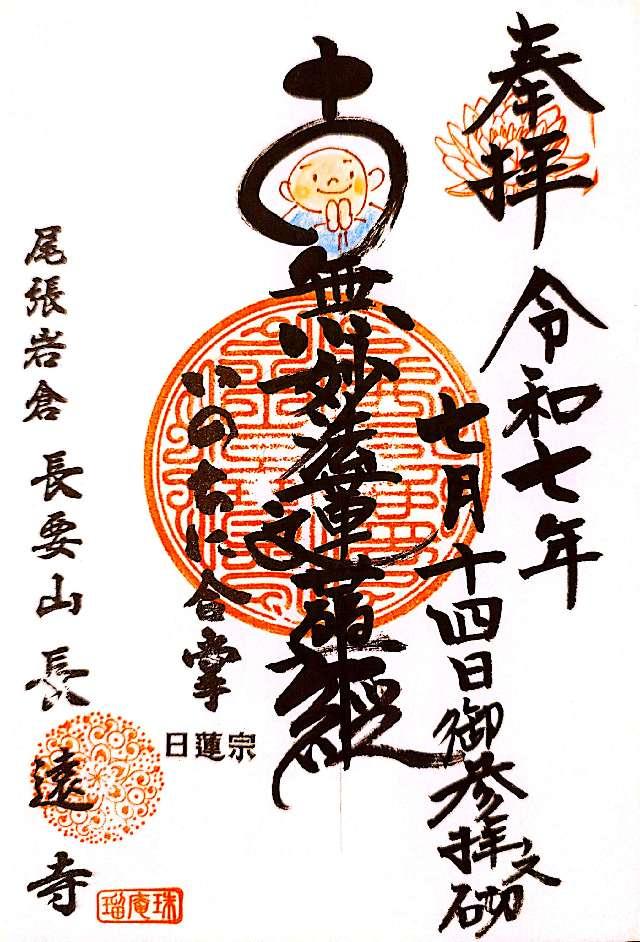 奉拝
令和七年
七月十四日御参拝之砌
南無妙法蓮華経
いのちに合掌
日蓮宗
尾張岩倉 長要山 長遠寺
瑠庵珠